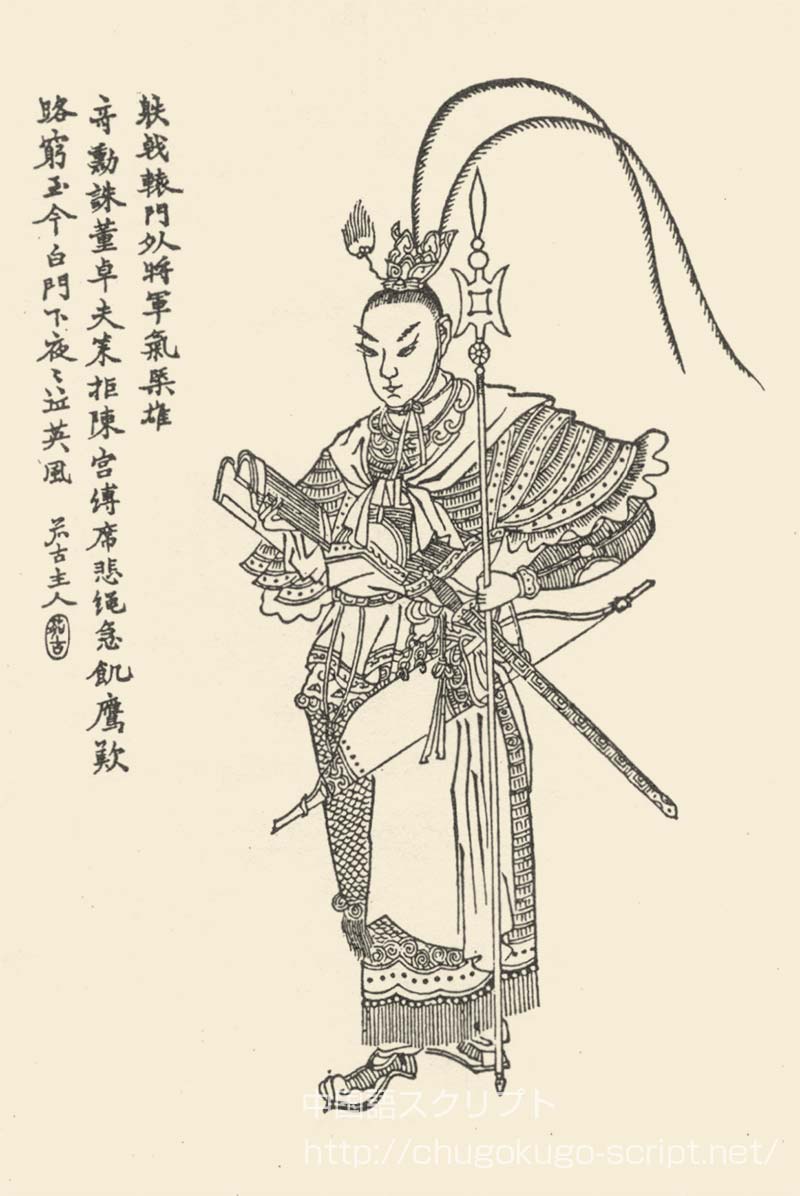 躰戟轅門外將軍氣槩雄
奇勳誅董卓夫策拒陳宮縛席悲绳急飢鷹歎
路窮玉今白門下夜〻泣英風
菊古主人
中国語スクリプト
http://chugokugo-script.net/